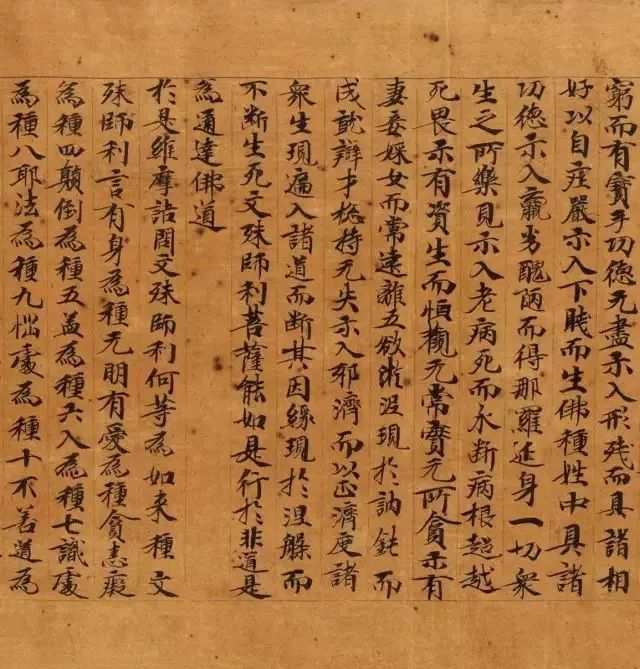 窮而有寶手功德无盡示入形殘而具諸相
好以自莊嚴示入下賤而生佛種姓中具諸
功德示入羸劣醜陋而得那羅延身一切衆
生之所樂見示入老病死而永断病根超越
死畏示有資生而恒觀无常實无所貪示有
妻妾婇女而常遠離五欲淤泥現於訥鈍而
成就辯才捴持无失示入邪濟而以正濟度諸
衆生現遍入諸道而断其因緣現於涅槃而
不断生死文殊師利菩薩能如是行於非道是
為通達佛道
於是維摩詰問文殊師利何等為如来種文
殊師利言有身為種无明有愛為種貪恚癡
為種四顛倒為種五盖為種六入為種七識處
為種八耶法為種九惱處為種十不善道為